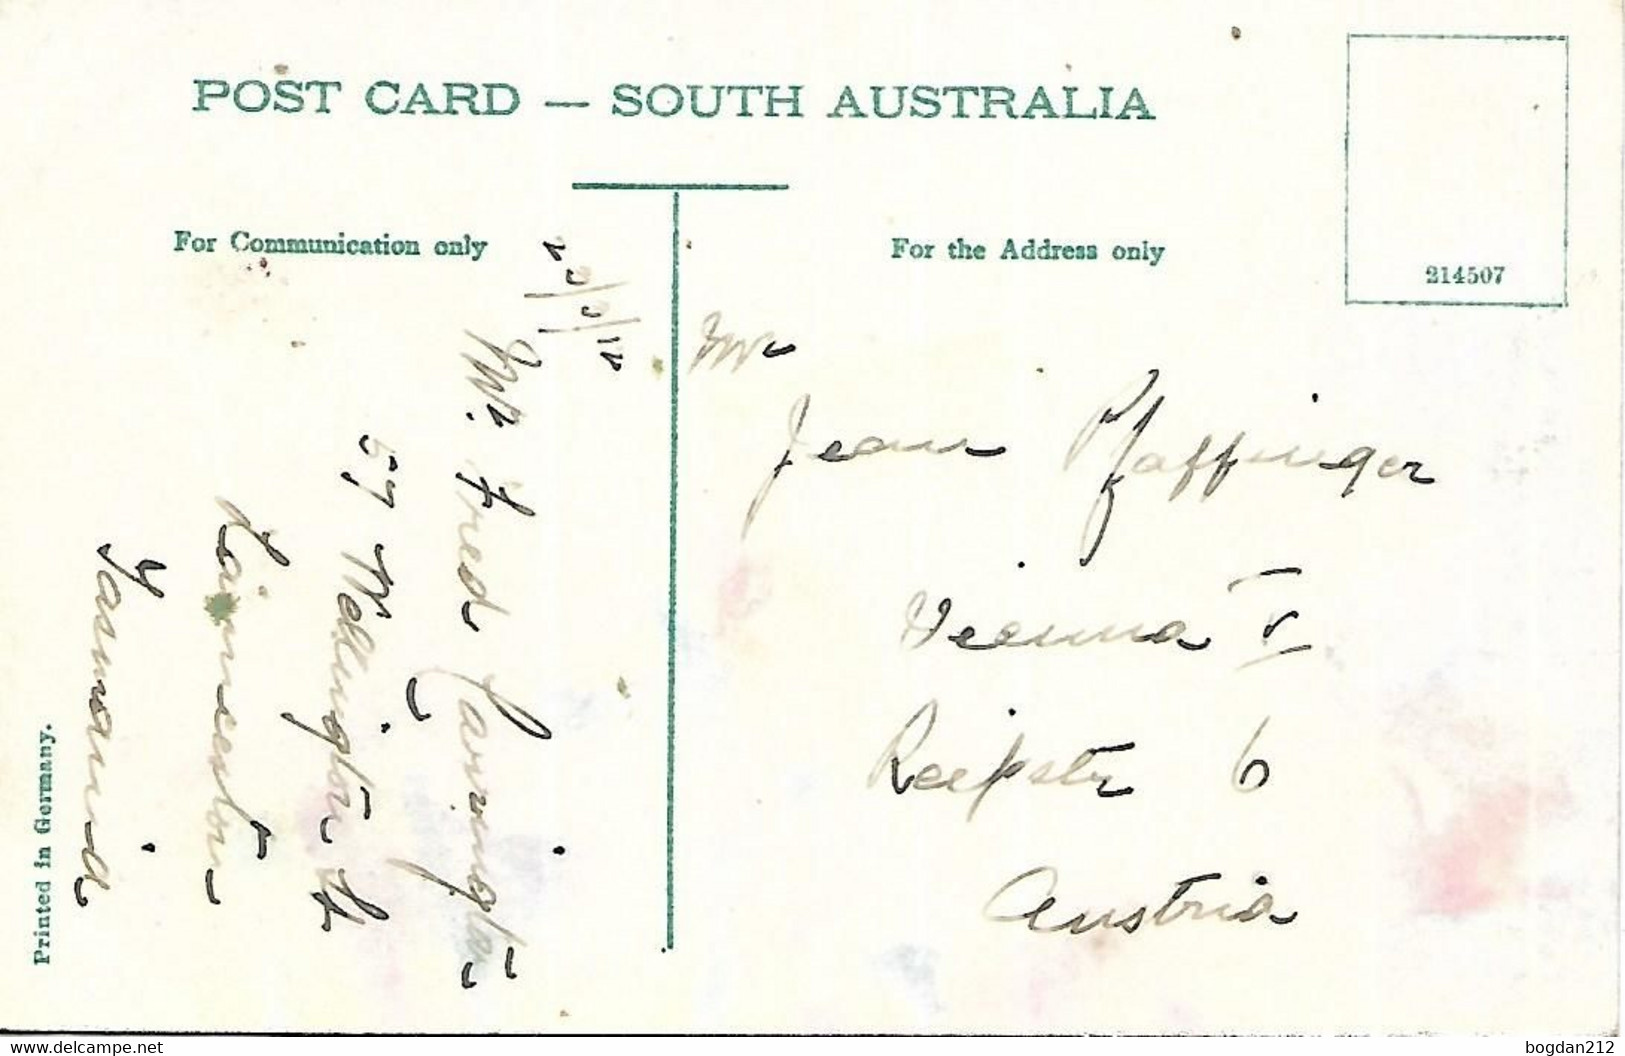 POST CARD — SOUTH AUSTRALIA
For Communication only
For the Address only
214507
Mr
Jean Pfaffinger
Vienna V
6
Austria
Mr. Fred
57 Wellington St
Launceston
Tasmania
Printed in Germany.
www.delcampe.net
bogdan212